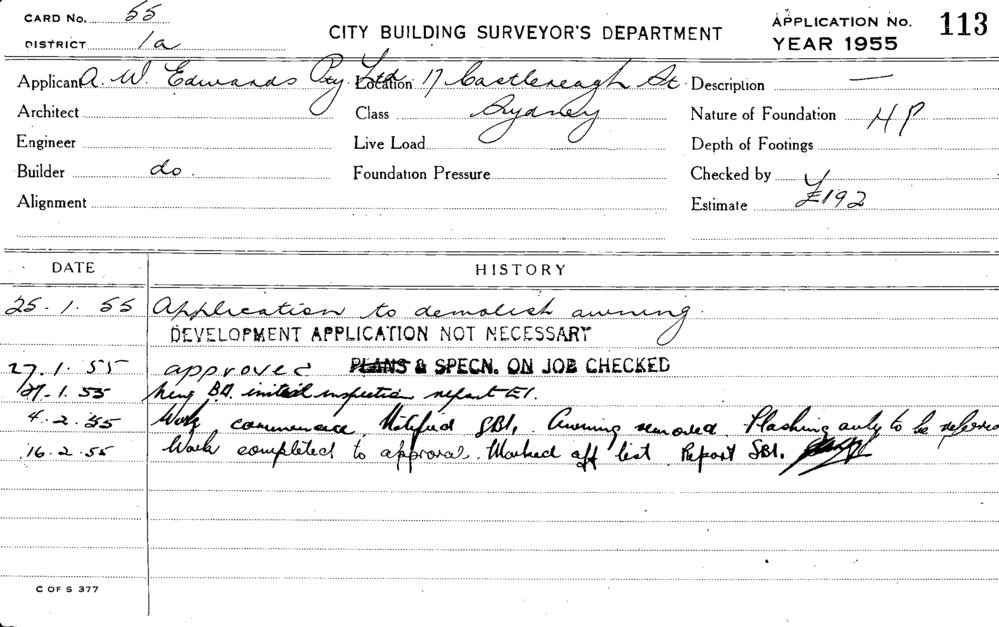 CARD No. 55
DISTRICT 1a
CITY BUILDING SURVEYOR'S DEPARTMENT
APPLICATION No. 113
YEAR 1955
Applicant A. W. Edwards Pty. Ltd. Location 17 Castlereagh St. Description —
Architect Class Sydney Nature of Foundation HP
Engineer Live Load Depth of Footings
Builder do. Foundation Pressure Checked by
Alignment Estimate £192
DATE HISTORY
25.1.55 Application to demolish awning.
DEVELOPMENT APPLICATION NOT NECESSARY
27.1.55 approved PLANS & SPECN. ON JOB CHECKED
27.1.55 initial inspection report
4.2.55 Work commenced. Notified SB1. Awning removed. Flashing only to be
16.2.55 Work completed to approval. Marked off list. Report SB1.
C OF S 377